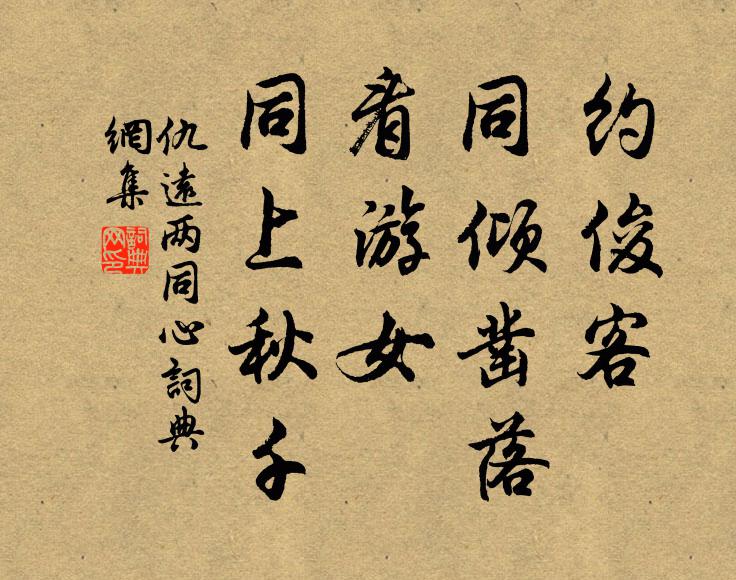 约俊客
同倾凿落
看游女
同上秋千
仇遠两同心詞典
網集
詞典
网印